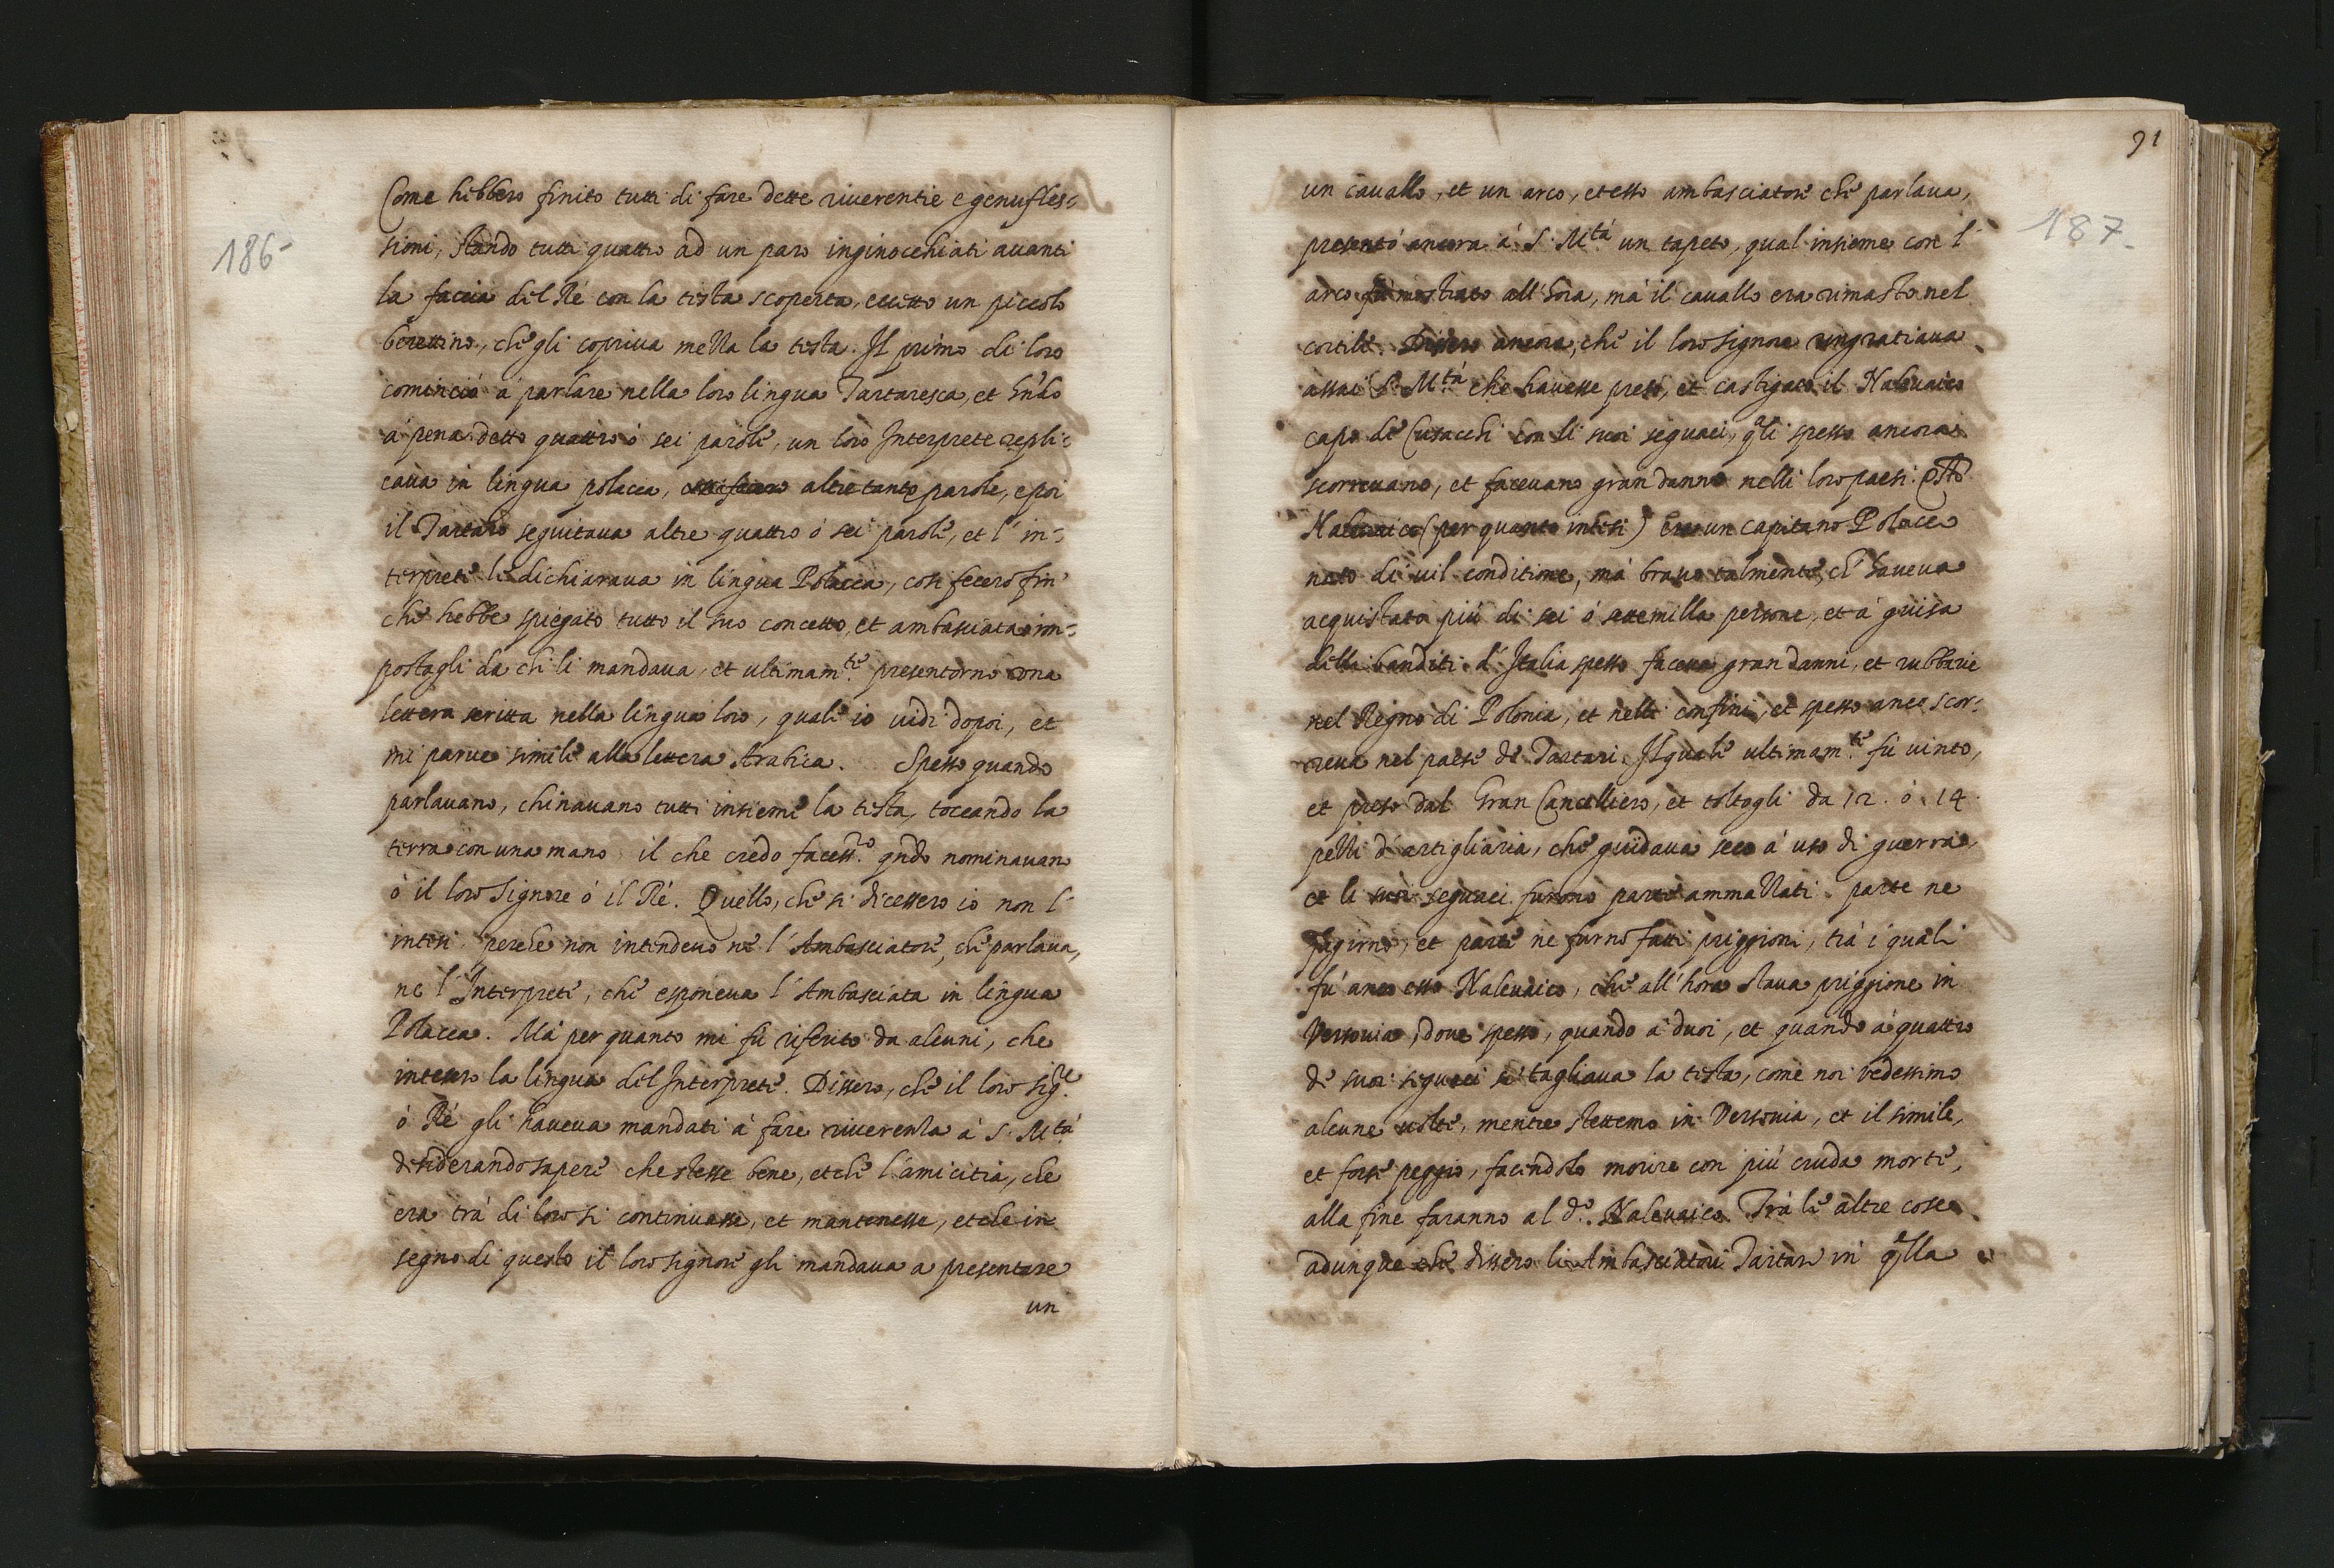 186-
Come hebbero finito tutti di fare dette riuerentie e genufles=
sioni, stando tutti quattro ad un paro inginocchiati auanti
la faccia del Rè con la testa scoperta, eccetto un piccolo
berettino, che gli copriua mezza la testa. Il primo di loro
cominciò à parlare nella loro lingua Tartaresca, et hauendo
à pena detto quattro ò sei parole, un loro Interprete repli=
caua in lingua polacca, altre tante parole, e poi
il Tartaro seguitaua altre quattro ò sei parole, et l' in=
terprete le dichiaraua in lingua Polacca, cosi fecero fin
che hebbe spiegato tutto il suo concetto, et ambasciata im=
postagli da chi li mandaua, et ultimam.te presentorno una
lettera scritta nella lingua loro, quale io uidi dopoi, et
mi parue simile alla lettera Arabica. Spesso quando
parlauano, chinauano tutti insieme la testa, toccando la
terra con una mano il che credo facess.ro qndo nominauano
ò il loro Signore ò il Rè. Quello, che si dicessero io non l'
intesi perche non intendeuo nè l' Ambasciatore, che parlaua,
ne l' Interprete, che esponeua l' Ambasciata in lingua
Polacca. Mà per quanto mi fù riferito da alcuni, che
intesero la lingua del Interprete. Dissero, che il loro Sig.re
ò Rè gli haueua mandati à fare riuerenza à S. M.tà
desiderando sapere che stesse bene, et che l' amicitia, che
era trà di loro si continuasse, et mantenesse, et che in
segno di questo il loro signore gli mandaua a presentare
un
91
187-
un cauallo, et un arco, et esso ambasciatore che parlaua,
presentò ancora à S. M.tà un tapeto, qual insieme con l'
arco fù mostrato all' hora, mà il cauallo era rimasto nel
cortile. Dissero ancora, che il loro signore ringratiaua
assai S. M.tà che hauesse preso, et castigato il Naleuaico
capo de Cusacchi con li suoi seguaci, qli spesso ancora
scorreuano, et faceuano gran danno nelli loro paesi.
Naleuaico (per quanto intesi) era un capitano Polacco
nato di uil conditione, mà brauo talmente, ch' haueua
acquistato più di sei ò settemilla persone, et à guisa
delli banditi d' Italia spesso faceua gran danni, et rubbarie
nel Regno di Polonia, et nelli confini, et spesso anco scor=
reua nel paese de Tartari. Il quale ultimam.te fù uinto,
et preso dal Gran Cancelliero, et toltogli da 12. ò 14
pezzi d' artigliaria, che guidaua seco à uso di guerra,
et li suoi seguaci furono parte ammazzati parte ne
fugirno, et parte ne furno fatti priggioni, trà i quali
fù anco esso Naleuaico, che all' hora staua priggione in
Versouia, doue spesso, quando à duoi, et quando à quattro
de suoi seguaci si tagliaua la testa, come noi vedessimo
alcune uolte, mentre stettemo in Versouia, et il simile,
et forse peggio, facendolo morire con più cruda morte,
alla fine faranno al d.o Naleuaico. Trà le altre cose
adunque che dissero li Ambasciatori Tartari in qlla